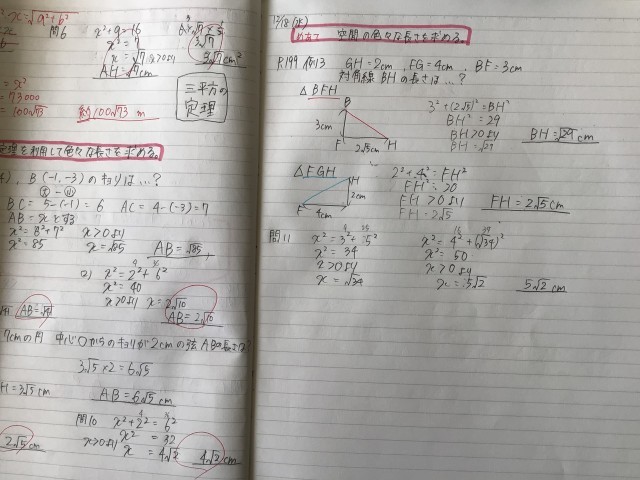 x=√a²+b²
問6
x²+9=16
x²=7
x=√7 x>0より
AH=√7cm
3√7
3√7cm²
三平方の
定理
=x²
=73000
=100√73
約100√73 m
定理を利用して色々な長さを求める。
B(-1,-3)のキョリは…?
BC=5-(-1)=6 AC=4-(-3)=7
AB=xとする
x²=85
x>0より
x=√85
AB=√85
2) x²=2²+6²
x²=40
x>0より x=2√10
AB=2√10
7cmの円 中心Oからのキョリが2cmの弦ABの長さは
3√5×2=6√5
H=3√5cm
AB=6√5cm
問10 x²+2²=6²
x>0より x²=32
x=4√2
4√2cm
2√5cm
12/18(水)
めあて 空間の色々な長さを求める。
P.199 例3 GH=2cm, FG=4cm, BF=3cm
対角線BHの長さは…?
△BFH
B
3cm
F
2√5cm
H
3²+(2√5)²=BH²
BH²=29
BH>0より
BH=√29
BH=√29cm
△FGH
H
2cm
F
4cm
G
2²+4²=FH²
FH²=20
FH>0より
FH=2√5
FH=2√5cm
問11
x²=3²+5²
x²=34
x>0より
x=√34
x²=4²+(√34)²
x²=50
x>0より
x=5√2
5√2cm